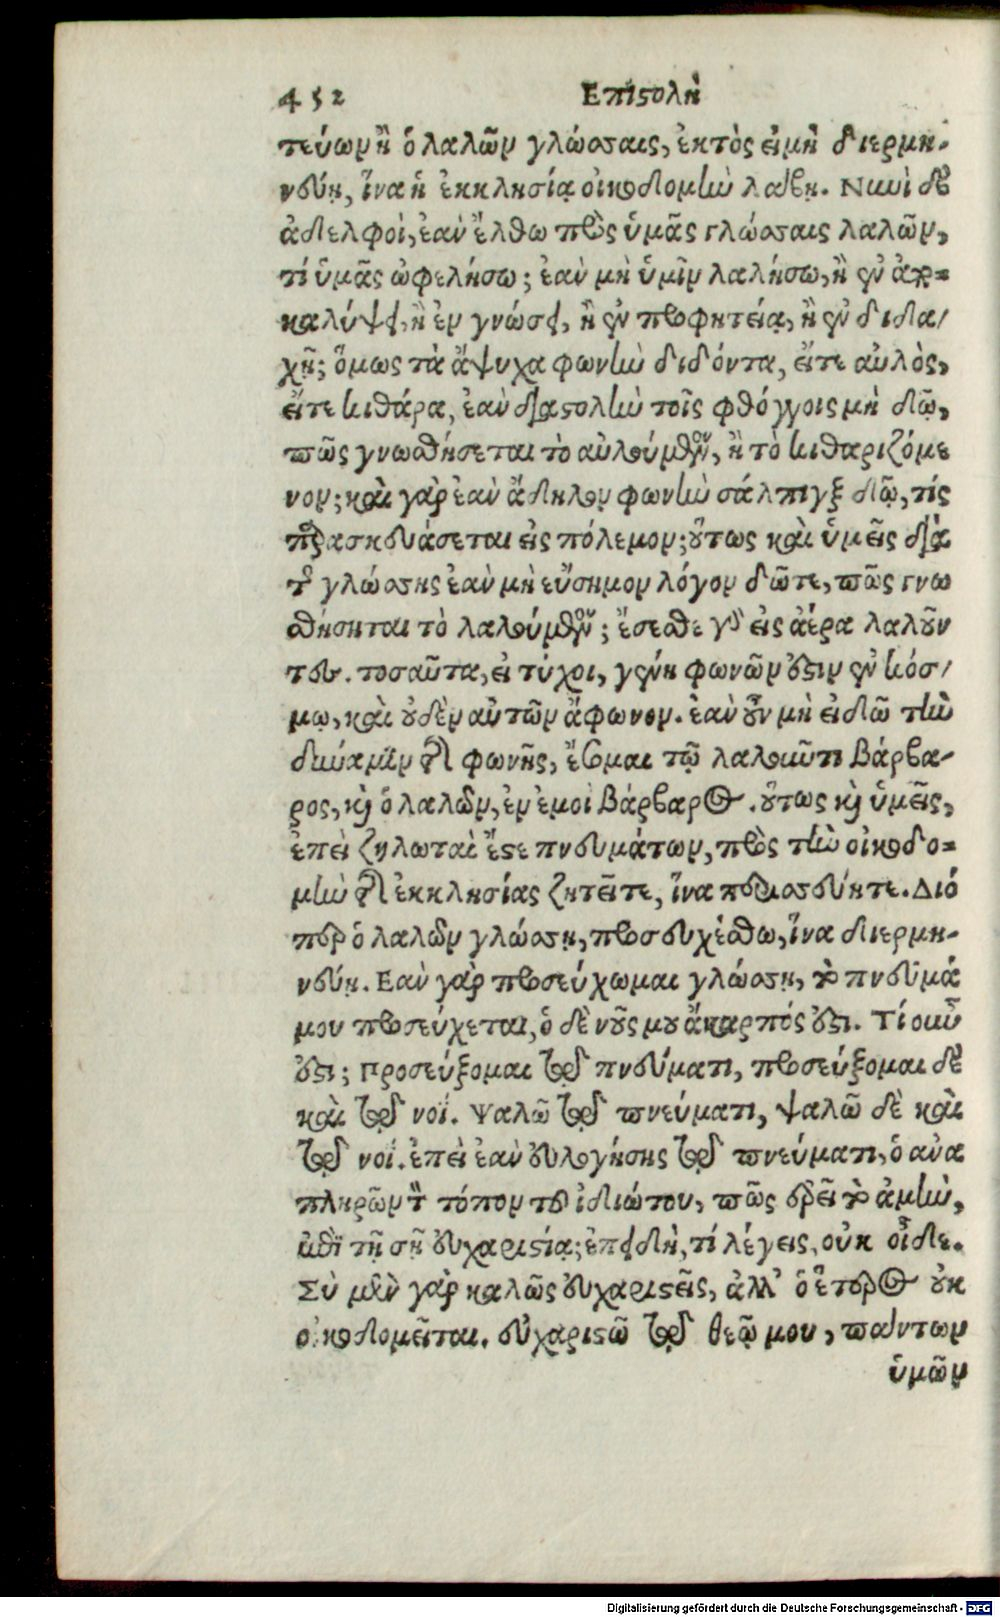 452 Επιστολὴ
τεύων ἢ ὁ λαλῶν γλώσσαις, ἐκτὸς εἰ μὴ διερμη-
νεύῃ, ἵνα ἡ ἐκκλησία οἰκοδομὴν λάβῃ. Νυνὶ δὲ
ἀδελφοὶ, ἐὰν ἔλθω πρὸς ὑμᾶς γλώσσαις λαλῶν,
τί ὑμᾶς ὠφελήσω; ἐὰν μὴ ὑμῖν λαλήσω, ἢ ἐν ἀπο-
καλύψει, ἢ ἐν γνώσει, ἢ ἐν προφητείᾳ, ἢ ἐν διδα-
χῇ; ὅμως τὰ ἄψυχα φωνὴν διδόντα, εἴτε αὐλὸς,
εἴτε κιθάρα, ἐὰν διαστολὴν τοῖς φθόγγοις μὴ δῷ,
πῶς γνωσθήσεται τὸ αὐλούμενον, ἢ τὸ κιθαριζόμε
νον; καὶ γὰρ ἐὰν ἄδηλον φωνὴν σάλπιγξ δῷ, τίς
παρασκευάσεται εἰς πόλεμον; οὕτως καὶ ὑμεῖς διὰ
τῆς γλώσσης ἐὰν μὴ εὔσημον λόγον δῶτε, πῶς γνω
σθήσηται τὸ λαλούμενον; ἔσεσθε γὰρ εἰς ἀέρα λαλοῦν
τες. τοσαῦτα, εἰ τύχοι, γένη φωνῶν ἐστιν ἐν κόσ-
μῳ, καὶ οὐδὲν αὐτῶν ἄφωνον. ἐὰν οὖν μὴ εἰδῶ τὴν
δύναμιν τῆς φωνῆς, ἔσομαι τῷ λαλοῦντι βάρβα-
ρος, καὶ ὁ λαλῶν, ἐν ἐμοὶ βάρβαρος. οὕτως καὶ ὑμεῖς,
ἐπεὶ ζηλωταί ἐστε πνευμάτων, πρὸς τὴν οἰκοδο-
μὴν τῆς ἐκκλησίας ζητεῖτε, ἵνα περισσεύητε. Διό
περ ὁ λαλῶν γλώσσῃ, προσευχέσθω, ἵνα διερμη-
νεύῃ. Εαν γὰρ προσεύχωμαι γλώσσῃ, τὸ πνεῦμά
μου προσεύχεται, ὁ δὲ νοῦς μου ἄκαρπός ἐστι. Τί οὖν
ἐστι; Προσεύξομαι τῷ πνεύματι, προσεύξομαι δὲ
καὶ τῷ νοΐ. Ψαλῶ τῷ πνεύματι, ψαλῶ δὲ καὶ
τῷ νοΐ. ἐπεὶ ἐὰν εὐλογήσης τῷ πνεύματι, ὁ ἀνα
πληρῶν τὸν τόπον τοῦ ἰδιώτου, πῶς ἐρεῖ τὸ ἀμὴν,
ἐπὶ τῇ σῇ εὐχαριστίᾳ; ἐπειδὴ, τί λέγεις, οὐκ οἶδε.
Σὺ μὲν γὰρ καλῶς εὐχαριστεῖς, ἀλλ’ ὁ ἕτερος οὐκ
οἰκοδομεῖται. εὐχαριστῶ τῷ θεῷ μου, πάντων
ὑμῶν
Digitalisierung gefördert durch die Deutsche Forschungsgemeinschaft - DFG